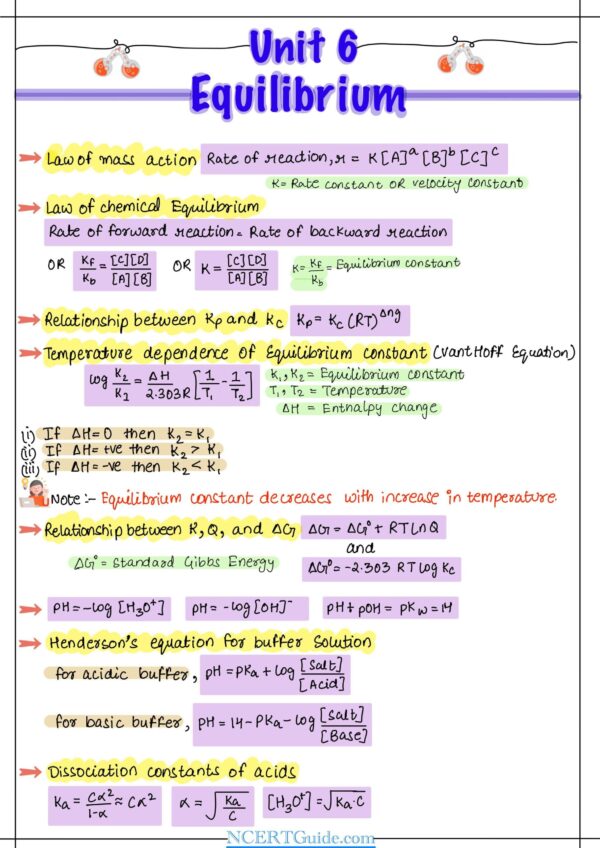 Unit 6
Equilibrium
Law of mass action Rate of reaction, r = K[A]ᵃ[B]ᵇ[C]ᶜ
K = Rate constant OR velocity constant
Law of chemical Equilibrium
Rate of forward reaction = Rate of backward reaction
OR Kf/Kb = [C][D]/[A][B] OR K = [C][D]/[A][B] K = Kf/Kb = Equilibrium constant
Relationship between Kp and Kc Kp = Kc (RT)^Δng
Temperature dependence of Equilibrium constant (Vant Hoff Equation)
log K2/K1 = ΔH/2.303R [1/T1 - 1/T2] K1, K2 = Equilibrium constant
T1, T2 = Temperature
ΔH = Enthalpy change
(i) If ΔH = 0 then K2 = K1
(ii) If ΔH = +ve then K2 > K1
(iii) If ΔH = -ve then K2 < K1
Note :- Equilibrium constant decreases with increase in temperature.
Relationship between K, Q, and ΔG ΔG = ΔG° + RT ln Q
and
ΔG° = Standard Gibbs Energy ΔG° = -2.303 RT log Kc
pH = -log [H3O⁺] pH = -log [OH]⁻ pH + pOH = pKw = 14
Henderson's equation for buffer solution
for acidic buffer, pH = PKa + log [Salt]/[Acid]
for basic buffer, pH = 14 - PKa - log [Salt]/[Base]
Dissociation constants of acids
Ka = Cα²/1-α ≈ Cα² α = √Ka/C [H3O⁺] = √Ka·C
NCERTGuide.com